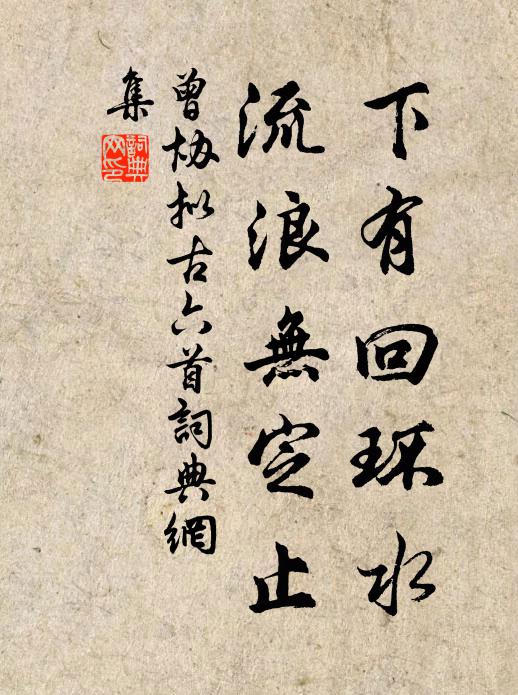 下有回环水
流浪無定止
曾协拟古六首詞典網
集
詞典
网印